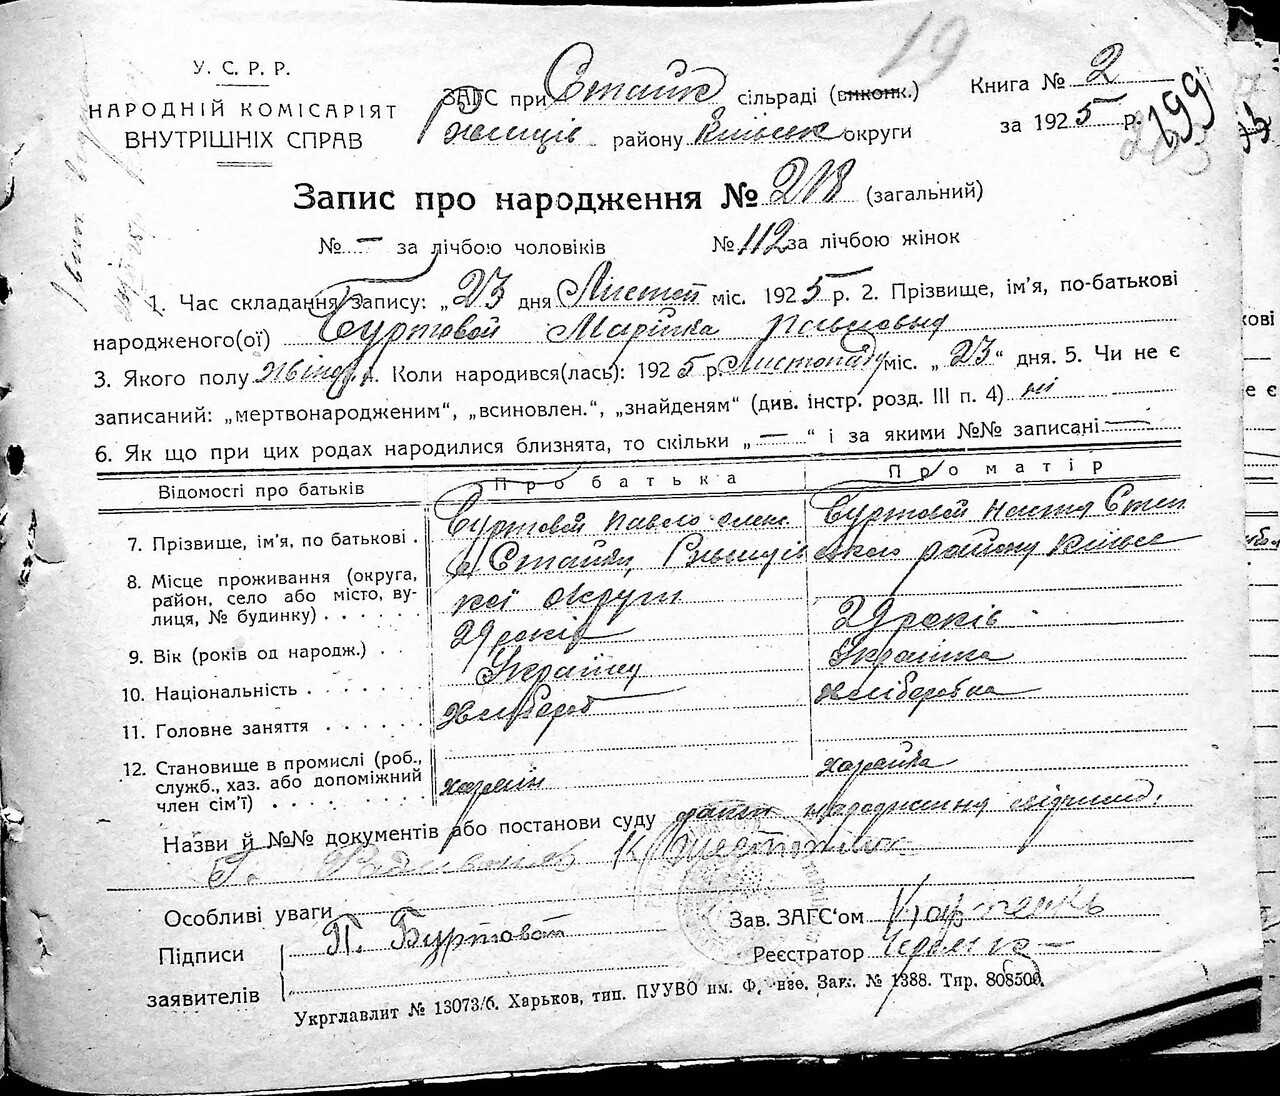 19
У. С. Р. Р.
НАРОДНІЙ КОМІСАРІЯТ
ВНУТРІШНІХ СПРАВ
ЗАГС при Стайк сільраді (виконк.)
району Київськ округи
Книга № 2
за 1925 р.
199
Запис про народження № 218 (загальний)
№ — за лічбою чоловіків № 112 за лічбою жінок
1. Час складання запису: „23 дня Листоп міс. 1925 р. 2. Прізвище, ім'я, по-батькові
народженого(ої) Буртовой Марійка Павловна
3. Якого полу жіноч. 4. Коли народився(лась): 1925 р. Листопаду міс. „23“ дня. 5. Чи не є
записаний: „мертвонародженим“, „всиновлен.“, „знайденям“ (див. інстр. розд. III п. 4) ні
6. Як що при цих родах народилися близнята, то скільки „—“ і за якими №№ записані —
Відомості про батьків Про батька Про матір
7. Прізвище, ім'я, по батькові . Буртовой Павло Олек. Буртовой Настя Степ
8. Місце проживання (округа, район, село або місто, вулиця, № будинку) . . . . . с Стайки, Ржищів ського району Київсь
кої округи
9. Вік (років од народж.) . . 29 років 29 років
10. Національність . . . . . . . Українец Українка
11. Головне заняття . . . . . . Хлібороб Хліборобка
12. Становище в промислі (роб., служб., хаз. або допоміжний член сім'ї) . . . . . . . хазяїн хазяйка
Назви й №№ документів або постанови суду народження
Особливі уваги
Підписи
заявителів
П. Буртовой
Зав. ЗАГС'ом
Реєстратор
Укрглавлит № 13073/6. Харьков, тип. ПУУВО им. Фрунзе. Зак. № 1388. Тир. 808500.